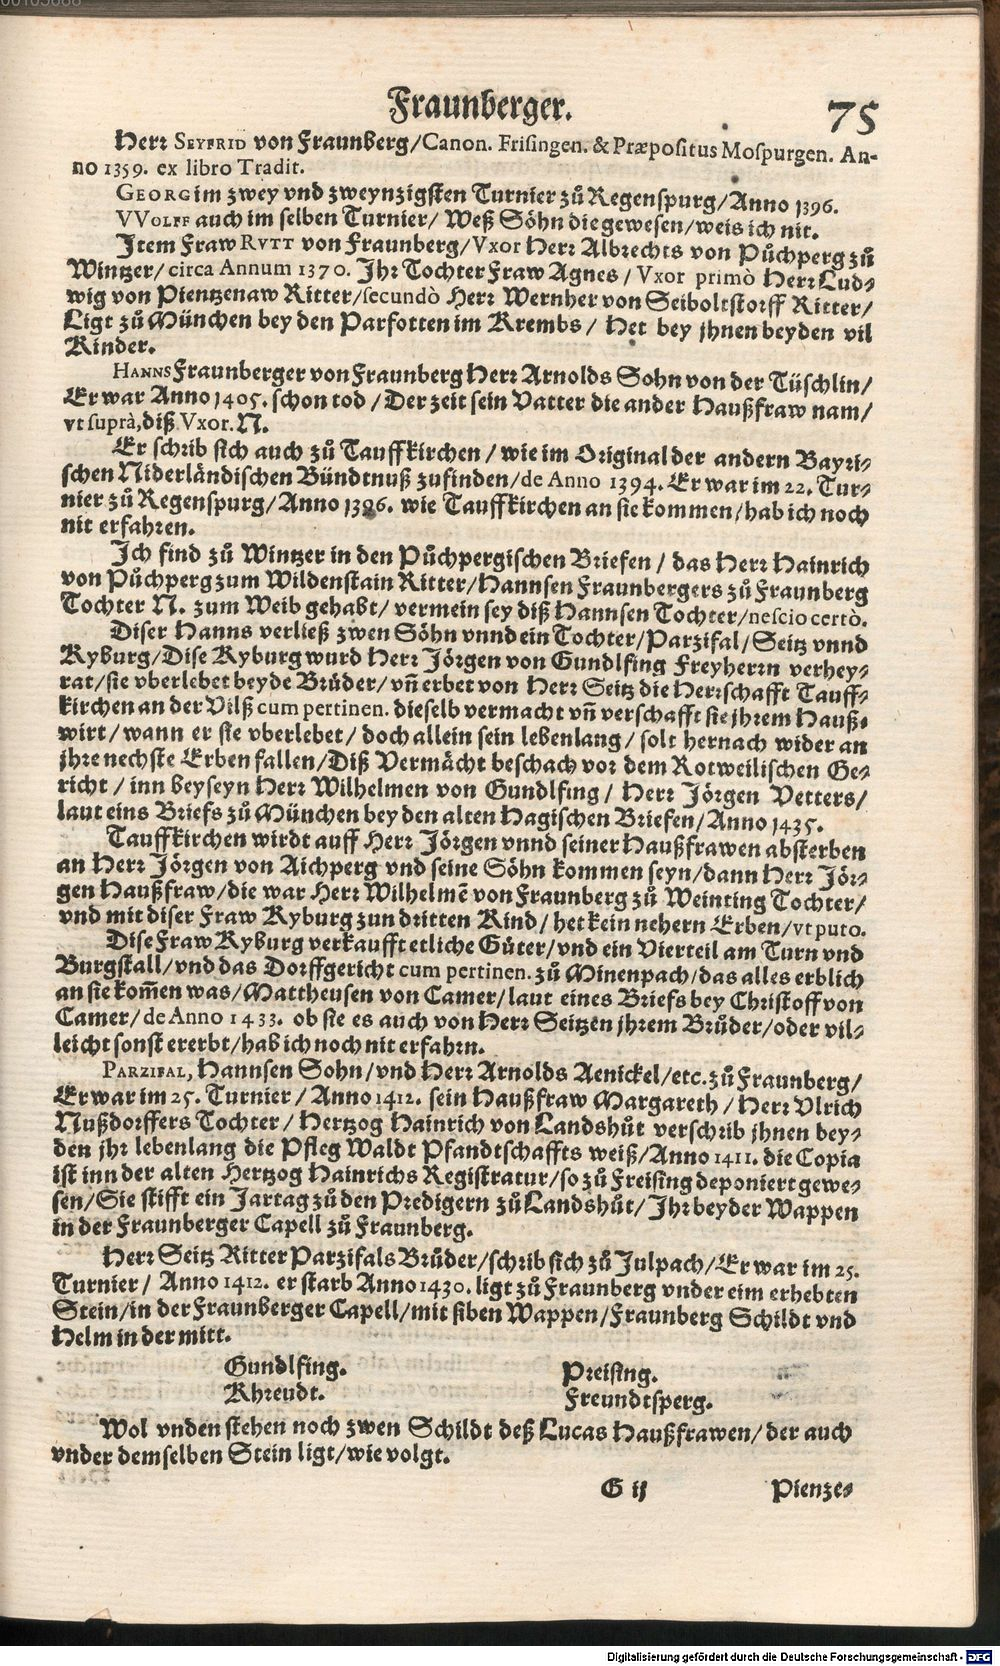 Fraunberger. 75
Herr SEYFRID von Fraunberg/Canon. Frisingen. & Præpositus Mospurgen. An-
no 1359. ex libro Tradit.
GEORG im zwey vnd zweyntzigsten Turnier zů Regenspurg/Anno 1396.
VVOLFF auch im selben Turnier/ Weß Söhn die gewesen/weis ich nit.
Item Fraw RVTT von Fraunberg/Vxor Herr Albrechts von Půchperg zů
Wintzer/circa Annum 1370. Ihr Tochter Fraw Agnes/Vxor primò Herr Lud-
wig von Pientzenaw Ritter/secundò Herr Wernher von Seiboltstorff Ritter/
Ligt zů München bey den Parfotten im Krembs/ Het bey jhnen beyden vil
Kinder.
HANNS Fraunberger von Fraunberg Herr Arnolds Sohn von der Tüschlin/
Er war Anno 1405. schon tod/Der zeit sein Vatter die ander Haußfraw nam/
vt suprà, diß Vxor. N.
Er schrib sich auch zů Tauffkirchen/wie im Original der andern Bayri-
schen Niderländischen Bündtnuß zufinden/de Anno 1394. Er war im 22. Tur-
nier zů Regenspurg/Anno 1396. wie Tauffkirchen an sie kommen/hab ich noch
nit erfahren.
Ich find zů Wintzer in den Půchpergischen Briefen/ das Herr Hainrich
von Půchperg zum Wildenstain Ritter/Hannsen Fraunbergers zů Fraunberg
Tochter N. zum Weib gehabt/ vermein sey diß Hannsen Tochter/nescio certò.
Diser Hanns verließ zwen Söhn vnnd ein Tochter/Parzifal/Seitz vnnd
Kyburg/Dise Kyburg wurd Herr Jörgen von Gundlfing Freyherrn verhey-
rat/sie vberlebet beyde Brüder/vñ erbet von Herr Seitz die Herrschafft Tauff-
kirchen an der Vilß cum pertinen. dieselb vermacht vñ verschafft sie jhrem Hauß-
wirt/wann er sie vberlebet/ doch allein sein lebenlang/ solt hernach wider an
jhre nechste Erben fallen/Diß Vermächt beschach vor dem Rotweilischen Ge-
richt/inn beyseyn Herr Wilhelmen von Gundlfing/ Herr Jörgen Vetters/
laut eins Briefs zů München bey den alten Hagischen Briefen/Anno 1435.
Tauffkirchen wirdt auff Herr Jörgen vnnd seiner Haußfrawen absterben
an Herr Jörgen von Aichperg vnd seine Söhn kommen seyn/dann Herr Jör-
gen Haußfraw/die war Herr Wilhelmẽ von Fraunberg zů Weinting Tochter/
vnd mit diser Fraw Kyburg zun dritten Kind/ het kein nehern Erben/vt puto.
Dise Fraw Kyburg verkaufft etliche Güter/vnd ein Vierteil am Turn vnd
Burgstall/vnd das Dorffgericht cum pertinen. zů Minenpach/das alles erblich
an sie kom̃en was/Mattheusen von Camer/laut eines Briefs bey Christoff von
Camer/de Anno 1433. ob sie es auch von Herr Seitzen jhrem Brůder/oder vil-
leicht sonst ererbt/hab ich noch nit erfahrn.
PARZIFAL, Hannsen Sohn/vnd Herr Arnolds Aenickel/etc. zů Fraunberg/
Er war im 25. Turnier/ Anno 1412. sein Haußfraw Margareth/Herr Vlrich
Nußdorffers Tochter/ Hertzog Hainrich von Landshůt verschrib jhnen bey-
den jhr lebenlang die Pfleg Waldt Pfandtschaffts weiß/Anno 1411. die Copia
ist inn der alten Hertzog Hainrichs Registratur/so zů Freising deponiert gewe-
sen/Sie stifft ein Jartag zů den Predigern zů Landshůt/ Ihr beyder Wappen
in der Fraunberger Capell zů Fraunberg.
Herr Seitz Ritter Parzifals Brůder/schrib sich zů Julpach/Er war im 25.
Turnier/ Anno 1412. er starb Anno 1430. ligt zů Fraunberg vnder eim erhebten
Stein/in der Fraunberger Capell/mit siben Wappen/Fraunberg Schildt vnd
Helm in der mitt.
Gundlfing. Preising.
Khreudt. Freundtsperg.
Wol vnden stehen noch zwen Schildt deß Lucas Haußfrawen/der auch
vnder demselben Stein ligt/wie volgt.
G ij Pienze-
Digitalisierung gefördert durch die Deutsche Forschungsgemeinschaft - DFG